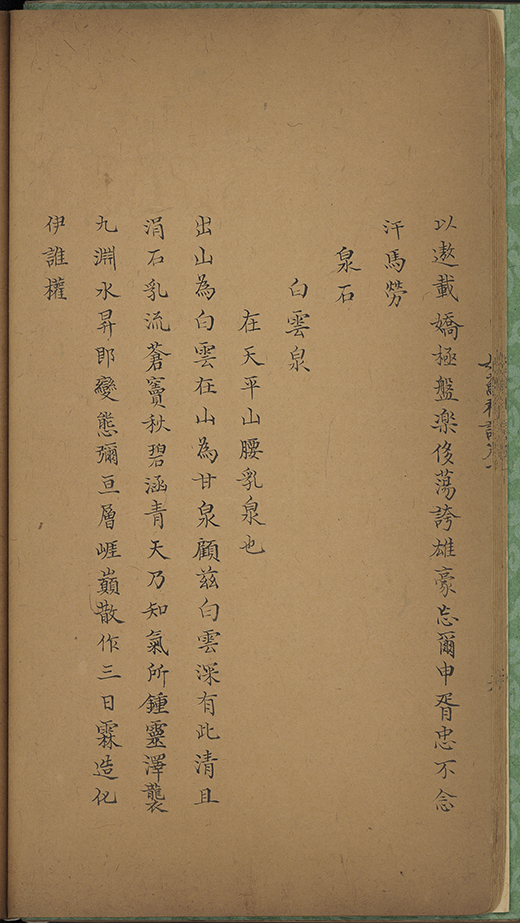 以遨載嬌極盤樂後蕩誇雄豪忘爾申胥忠不念
汗馬勞
泉石
白雲泉
在天平山腰乳泉也
出山為白雲在山為甘泉顧茲白雲深有此清且
涓石乳流蒼竇秋碧涵青天乃知氣所鍾靈澤襲
九淵水昇即變態彌亘層崕巔散作三日霖造化
伊誰權